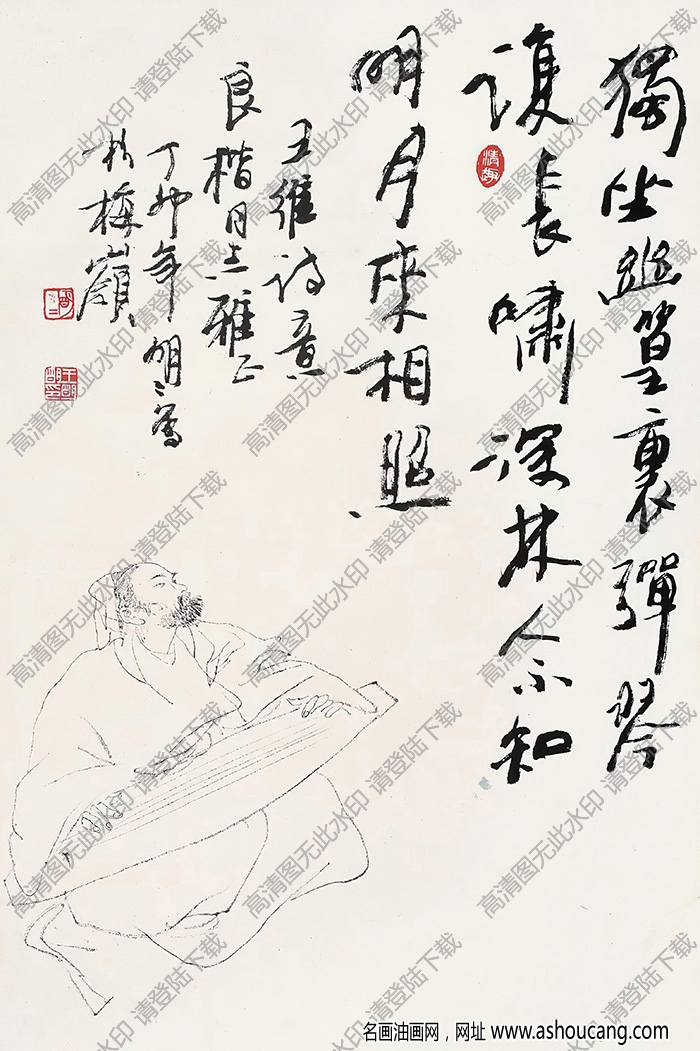 獨坐幽篁裏彈琴
復長嘯深林人不知
明月來相照
王維诗意
良楷同志雅正
丁卯年明明寫
於梅嶺
清趣
高清图无此水印 请登陆下载
名画油画网，网址 www.ashoucang.com